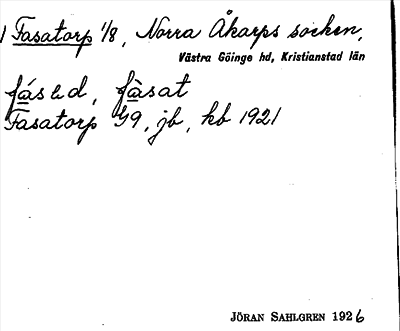 1 Fasatorp 1/8, Norra Åkarps socken,
Västra Göinge hd, Kristianstad län
fásəd, fàsat
Fasatorp G9, jb, kb 1921
JÖRAN SAHLGREN 1926